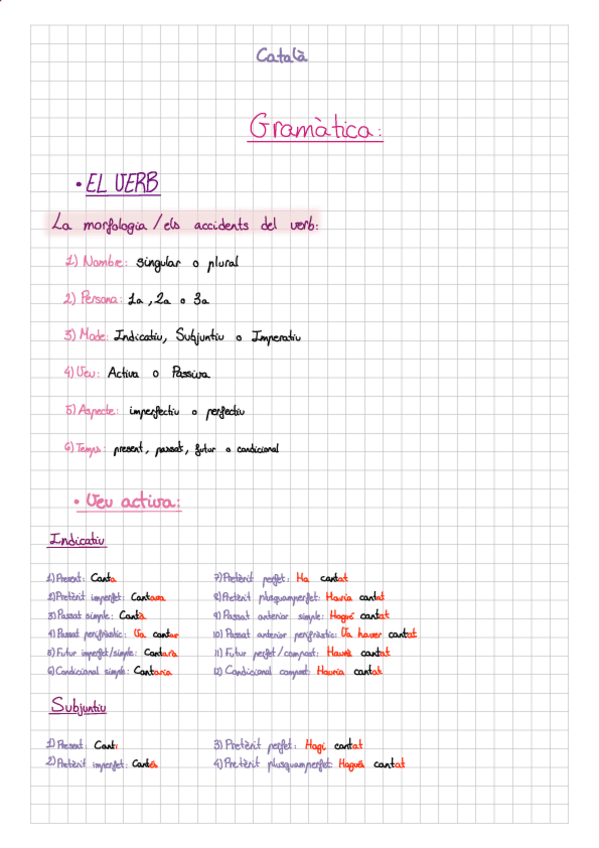 Català
Gramàtica:
• EL VERB
La morfologia / els accidents del verb:
1) Nombre: singular o plural
2) Persona: 1a, 2a o 3a
3) Mode: Indicatiu, Subjuntiu o Imperatiu
4) Veu: Activa o Passiva
5) Aspecte: imperfectiu o perfectiu
6) Temps: present, passat, futur o condicional
• Veu activa:
Indicatiu
1) Present: Canta
2) Pretèrit imperfet: Cantava
3) Passat simple: Cantà
4) Passat perifràstic: Va cantar
5) Futur imperfet/simple: Cantarà
6) Condicional simple: Cantaria
7) Pretèrit perfet: Ha cantat
8) Pretèrit plusquamperfet: Havia cantat
9) Passat anterior simple: Hagué cantat
10) Passat anterior perifràstic: Va haver cantat
11) Futur perfet/compost: Haurà cantat
12) Condicional compost: Hauria cantat
Subjuntiu
1) Present: Canti
2) Pretèrit imperfet: Cantés
3) Pretèrit perfet: Hagi cantat
4) Pretèrit plusquamperfet: Hagués cantat